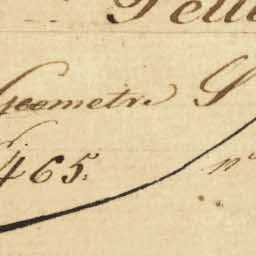 Pelli
Geometra S
465. n